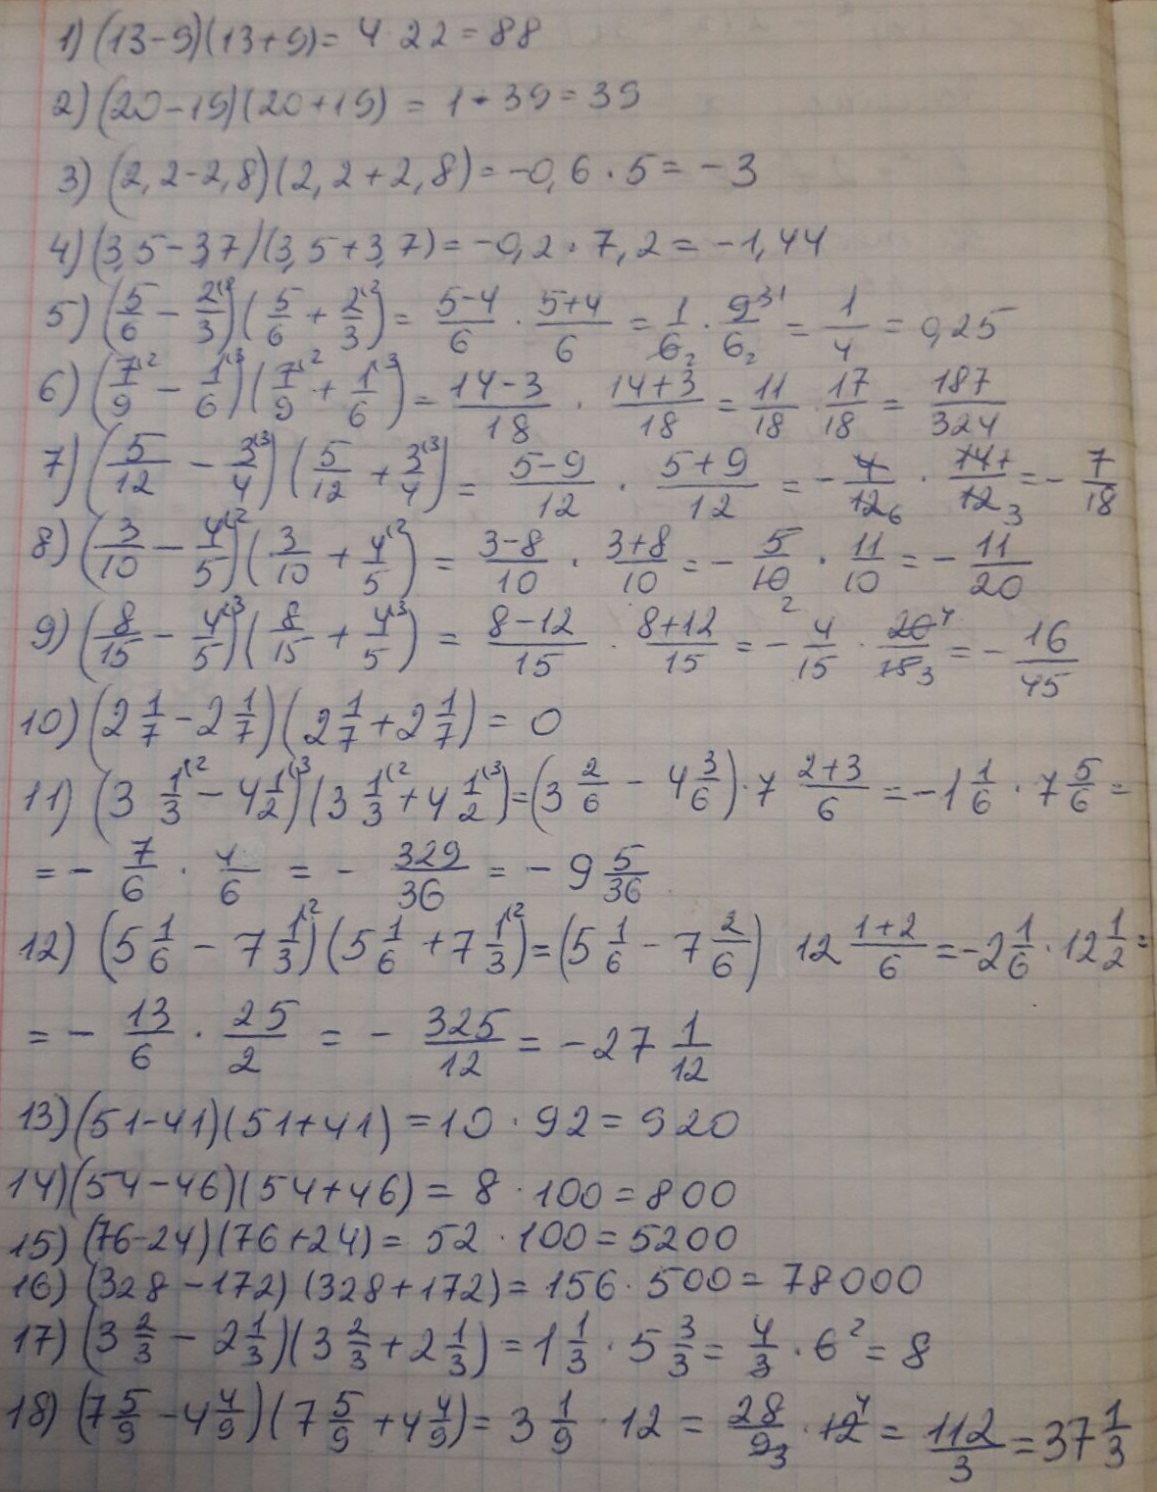 1) (13-9)(13+9)= 4·22=88
2) (20-19)(20+19) = 1·39=39
3) (2,2-2,8)(2,2+2,8)=-0,6·5=-3
4) (3,5-3,7)(3,5+3,7)=-0,2·7,2=-1,44
5) (5/6 - 2/3^(2)(5/6 + 2/3^(2) = (5-4)/6 · (5+4)/6 = 1/6 2 · 9 3 1/6 2 = 1/4 = 0,25
6) (7/9^(2 - 1/6^(3)(7/9^(2 + 1/6^(3) = (14-3)/18 · (14+3)/18 = 11/18 · 17/18 = 187/324
7) (5/12 - 3/4^(3)(5/12 + 3/4^(3) = (5-9)/12 · (5+9)/12 = - 4/12 6 · 14 7/12 3 = - 7/18
8) (3/10 - 4/5^(2)(3/10 + 4/5^(2) = (3-8)/10 · (3+8)/10 = - 5/10 2 · 11/10 = - 11/20
9) (8/15 - 4/5^(3)(8/15 + 4/5^(3) = (8-12)/15 · (8+12)/15 = - 4/15 · 20 4/15 3 = - 16/45
10) (2 1/7 - 2 1/7)(2 1/7 + 2 1/7) = 0
11) (3 1/3^(2 - 4 1/2^(3)(3 1/3^(2 + 4 1/2^(3) = (3 2/6 - 4 3/6)·7 (2+3)/6 = -1 1/6 · 7 5/6 =
= - 7/6 · 4/6 = - 329/36 = - 9 5/36
12) (5 1/6 - 7 1/3^(2)(5 1/6 + 7 1/3^(2) = (5 1/6 - 7 2/6) 12 (1+2)/6 = -2 1/6 · 12 1/2 =
= - 13/6 · 25/2 = - 325/12 = -27 1/12
13) (51-41)(51+41) = 10·92 = 920
14) (54-46)(54+46) = 8·100 = 800
15) (76-24)(76+24) = 52·100 = 5200
16) (328-172)(328+172) = 156·500 = 78000
17) (3 2/3 - 2 1/3)(3 2/3 + 2 1/3) = 1 1/3 · 5 3/3 = 4/3 · 6 2 = 8
18) (7 5/9 - 4 4/9)(7 5/9 + 4 4/9) = 3 1/9 · 12 = 28/9 3 · 12 4 = 112/3 = 37 1/3